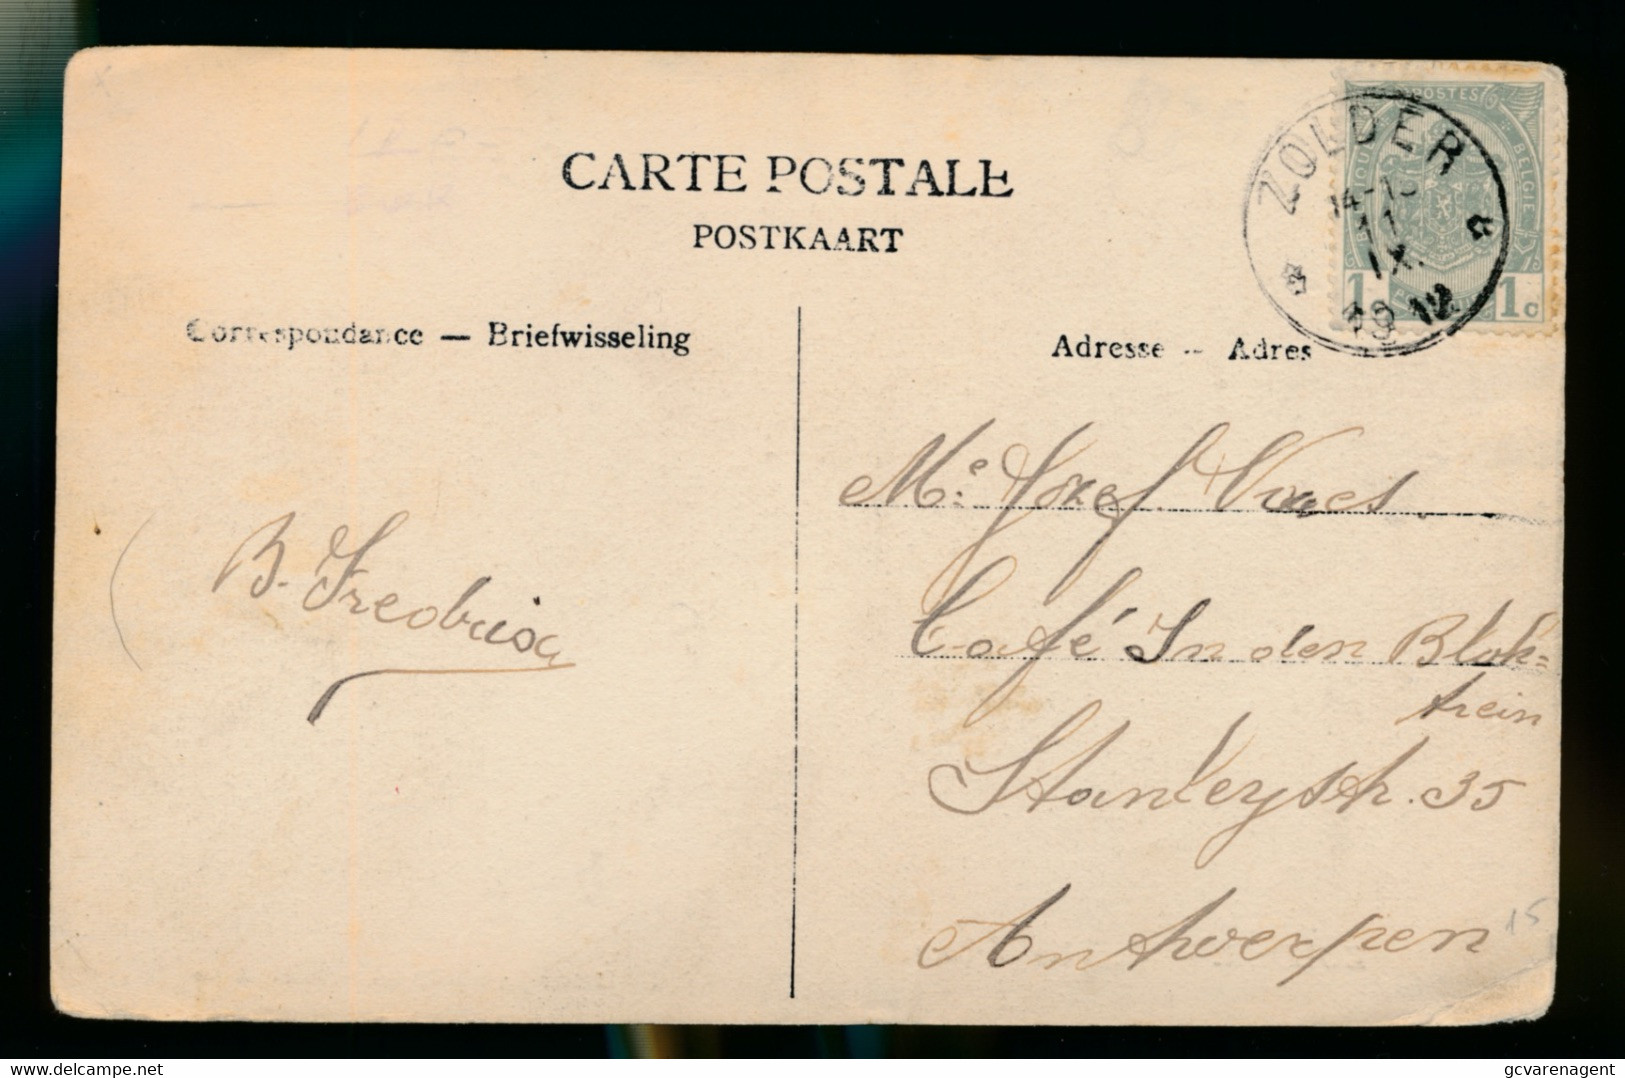 CARTE POSTALE
POSTKAART
Correspondance — Briefwisseling
Adresse -- Adres
ZOLDER
14-15
11
IX.
1912
POSTES
BELGIE
1c
1c
B. Fredrix
Mr. Jozef Vaes.
Café In den Blok=
trein
Stanleystr. 35
Antwerpen
15
gcvarenagent